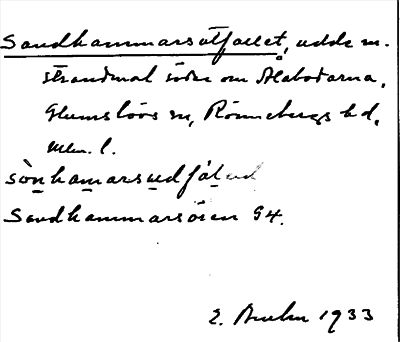 Sandhammarsåtfallet, udde m.
strandmal söder om Ålabodarna,
Glumslövs sn, Rönnebergs hd,
Mlm. l.
sònhamarsudfálud
Sandhammarsören G4.
E. Bruhn 1933